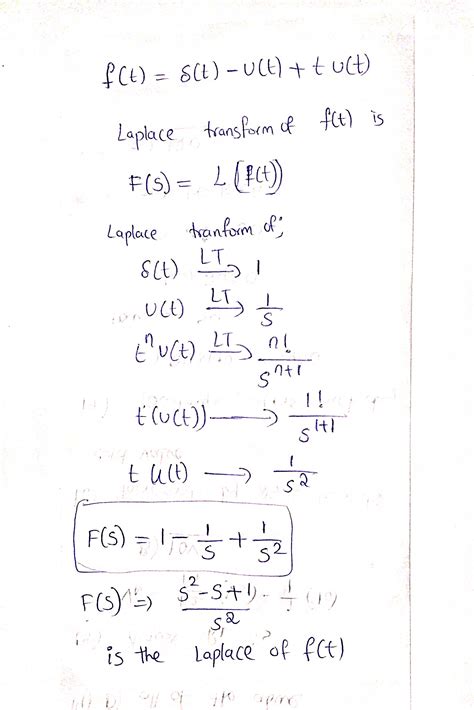 f(t) = δ(t) - u(t) + t u(t)
Laplace transform of f(t) is
F(S) = L (f(t))
Laplace tranform of;
δ(t) LT→ 1
u(t) LT→ 1/S
t^n u(t) LT→ n!/S^n+1
t(u(t)) → 1!/S^1+1
t u(t) → 1/S^2
F(S) = 1 - 1/S + 1/S^2
F(S) ⇒ S^2-S+1/S^2
is the Laplace of f(t)